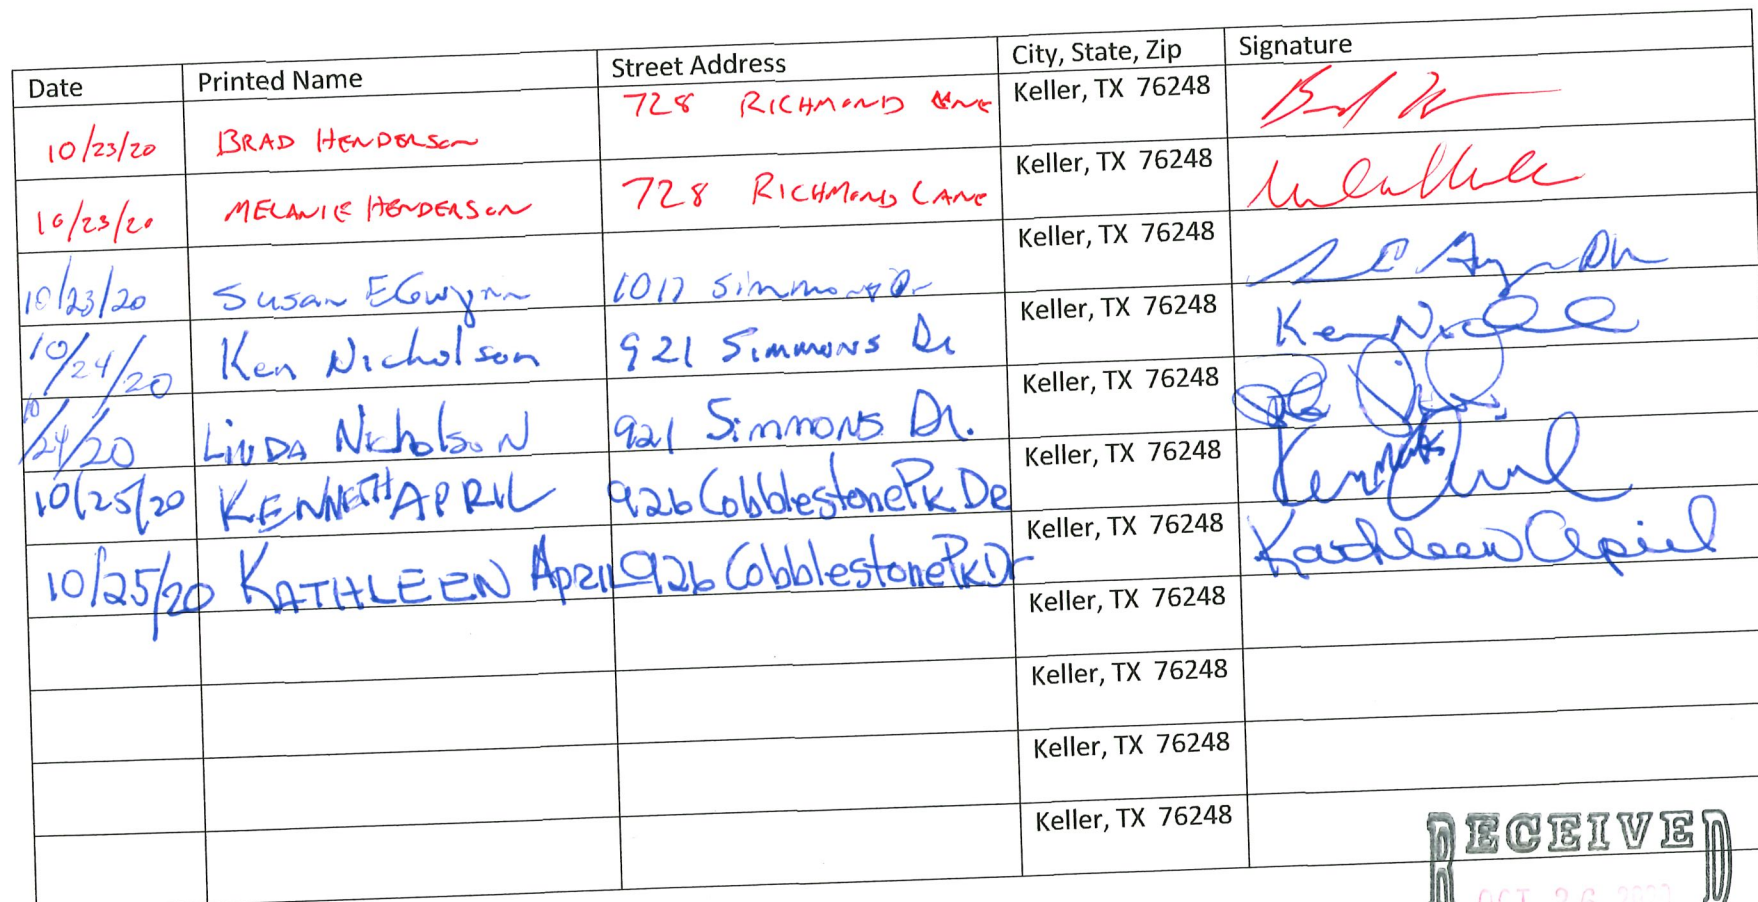 Date Printed Name Street Address City, State, Zip Signature
10/23/20 BRAD HENDERSON 728 RICHMOND LANE Keller, TX 76248
10/23/20 MELANIE HENDERSON 728 RICHMOND LANE Keller, TX 76248
10/23/20 Susan E Gwynn 1017 Simmons Dr Keller, TX 76248
10/24/20 Ken Nicholson 921 Simmons Dr Keller, TX 76248 Ken Nicholson
10/24/20 LINDA Nicholson 921 Simmons Dr. Keller, TX 76248
10/25/20 KENNETH APRIL 926 Cobblestone Pk Dr Keller, TX 76248 Kenneth April
10/25/20 KATHLEEN April 926 Cobblestone Pk Dr Keller, TX 76248 Kathleen April
Keller, TX 76248
Keller, TX 76248
Keller, TX 76248
Keller, TX 76248
RECEIVED
OCT 26 2020